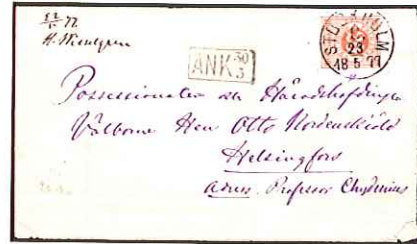 77.
STOCKHOLM
23
18 5 77
ANK 30
3
Possessionaten och Häradshöfdingen
Välborne Herr Otto Nordenskiöld
Helsingfors
adress. Professor Chydenius